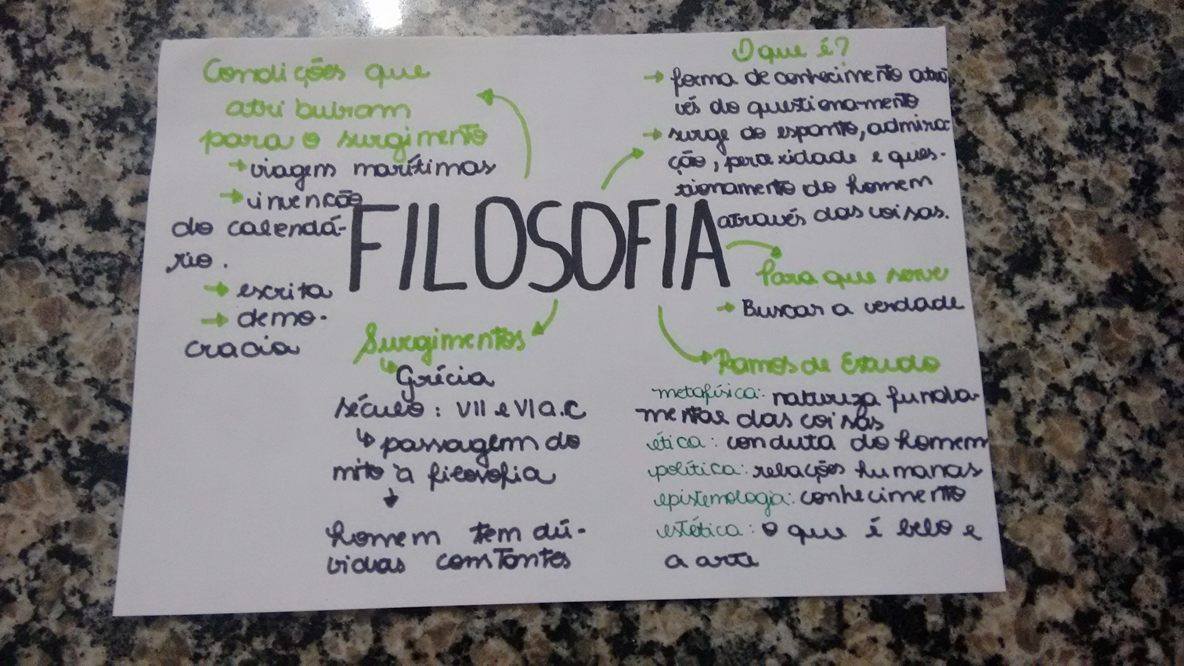 FILOSOFIA
Condições que
atribuiram
para o surgimento
→ viagens marítimas
→ invenção
do calendá-
rio.
→ escrita
→ demo-
cracia
O que é?
→ forma de conhecimento atra
vés do questionamento
→ surge do espanto, admira-
ção, perxidade e ques-
tionamento do homem
através das coisas.
Para que serve
→ Buscar a verdade
Surgimentos
↳ Grécia
século: VII e VI a.C
↳ passagem do
mito à filosofia
↓
homem tem dú-
vidas constantes
Ramos de Estudo
metafísica: natureza funda-
mental das coisas
ética: conduta do homem
política: relações humanas
epistemologia: conhecimento
estética: o que é belo e
a arte